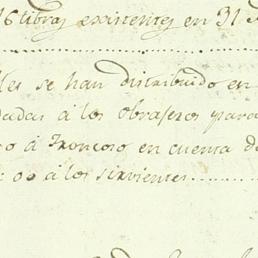 6 libras existentes en 31
les se han distribuido en
dadas á los obrageros para
o á Troncoso en cuenta de
00 á los sirvientes